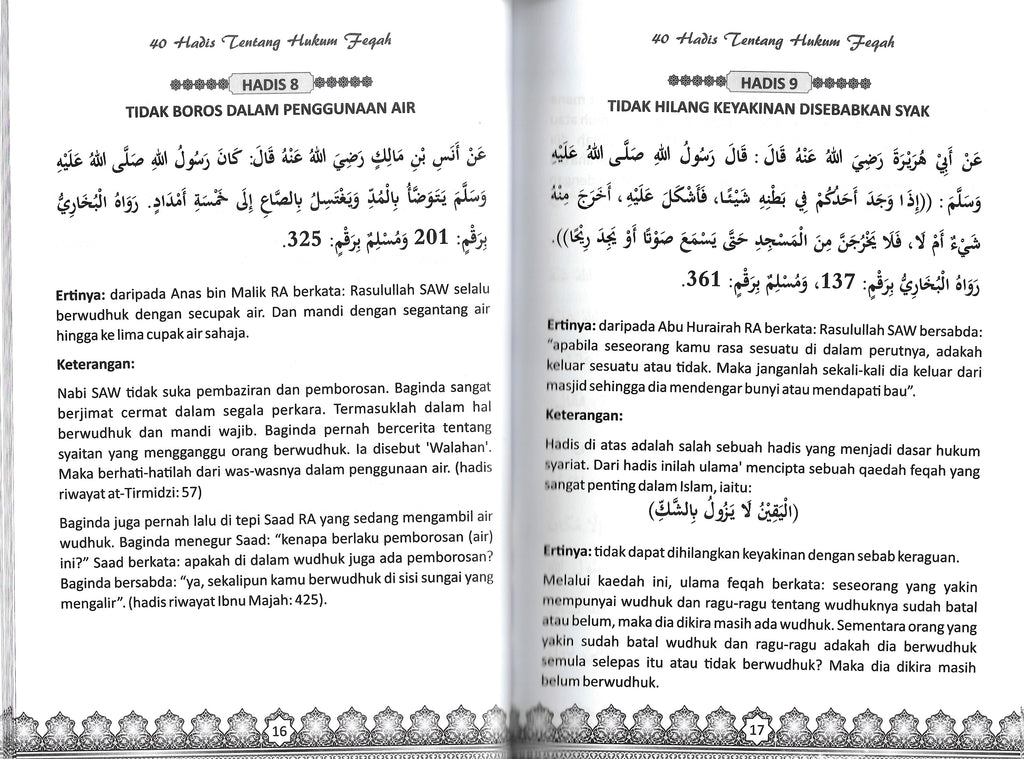 40 Hadis Tentang Hukum Feqah
HADIS 8
TIDAK BOROS DALAM PENGGUNAAN AIR
عَنْ أَنَسِ بْنِ مَالِكٍ رَضِيَ اللهُ عَنْهُ قَالَ: كَانَ رَسُولُ اللهِ صَلَّى اللهُ عَلَيْهِ
وَسَلَّمَ يَتَوَضَّأُ بِالْمُدِّ وَيَغْتَسِلُ بِالصَّاعِ إِلَى خَمْسَةِ أَمْدَادٍ. رَوَاهُ الْبُخَارِيُّ
بِرَقْمِ: 201 وَمُسْلِمٌ بِرَقْمِ: 325.
Ertinya: daripada Anas bin Malik RA berkata: Rasulullah SAW selalu
berwudhuk dengan secupak air. Dan mandi dengan segantang air
hingga ke lima cupak air sahaja.
Keterangan:
Nabi SAW tidak suka pembaziran dan pemborosan. Baginda sangat
berjimat cermat dalam segala perkara. Termasuklah dalam hal
berwudhuk dan mandi wajib. Baginda pernah bercerita tentang
syaitan yang mengganggu orang berwudhuk. Ia disebut 'Walahan'.
Maka berhati-hatilah dari was-wasnya dalam penggunaan air. (hadis
riwayat at-Tirmidzi: 57)
Baginda juga pernah lalu di tepi Saad RA yang sedang mengambil air
wudhuk. Baginda menegur Saad: “kenapa berlaku pemborosan (air)
ini?” Saad berkata: apakah di dalam wudhuk juga ada pemborosan?
Baginda bersabda: “ya, sekalipun kamu berwudhuk di sisi sungai yang
mengalir”. (hadis riwayat Ibnu Majah: 425).
16
40 Hadis Tentang Hukum Feqah
HADIS 9
TIDAK HILANG KEYAKINAN DISEBABKAN SYAK
عَنْ أَبِيْ هُرَيْرَةَ رَضِيَ اللهُ عَنْهُ قَالَ : قَالَ رَسُولُ اللهِ صَلَّى اللهُ عَلَيْهِ
وَسَلَّمَ : ((إِذَا وَجَدَ أَحَدُكُمْ فِي بَطْنِهِ شَيْئًا، فَأَشْكَلَ عَلَيْهِ، أَخَرَجَ مِنْهُ
شَيْءٌ أَمْ لَا، فَلَا يَخْرُجَنَّ مِنَ الْمَسْجِدِ حَتَّى يَسْمَعَ صَوْتًا أَوْ يَجِدَ رِيْحًا)).
رَوَاهُ الْبُخَارِيُّ بِرَقْمِ: 137، وَمُسْلِمٌ بِرَقْمٍ: 361.
Ertinya: daripada Abu Hurairah RA berkata: Rasulullah SAW bersabda:
“apabila seseorang kamu rasa sesuatu di dalam perutnya, adakah
keluar sesuatu atau tidak. Maka janganlah sekali-kali dia keluar dari
masjid sehingga dia mendengar bunyi atau mendapati bau”.
Keterangan:
Hadis di atas adalah salah sebuah hadis yang menjadi dasar hukum
syariat. Dari hadis inilah ulama' mencipta sebuah qaedah feqah yang
sangat penting dalam Islam, iaitu:
(الْيَقِيْنُ لَا يَزُولُ بِالشَّكِّ)
Ertinya: tidak dapat dihilangkan keyakinan dengan sebab keraguan.
Melalui kaedah ini, ulama feqah berkata: seseorang yang yakin
mempunyai wudhuk dan ragu-ragu tentang wudhuknya sudah batal
atau belum, maka dia dikira masih ada wudhuk. Sementara orang yang
yakin sudah batal wudhuk dan ragu-ragu adakah dia berwudhuk
semula selepas itu atau tidak berwudhuk? Maka dia dikira masih
belum berwudhuk.
17